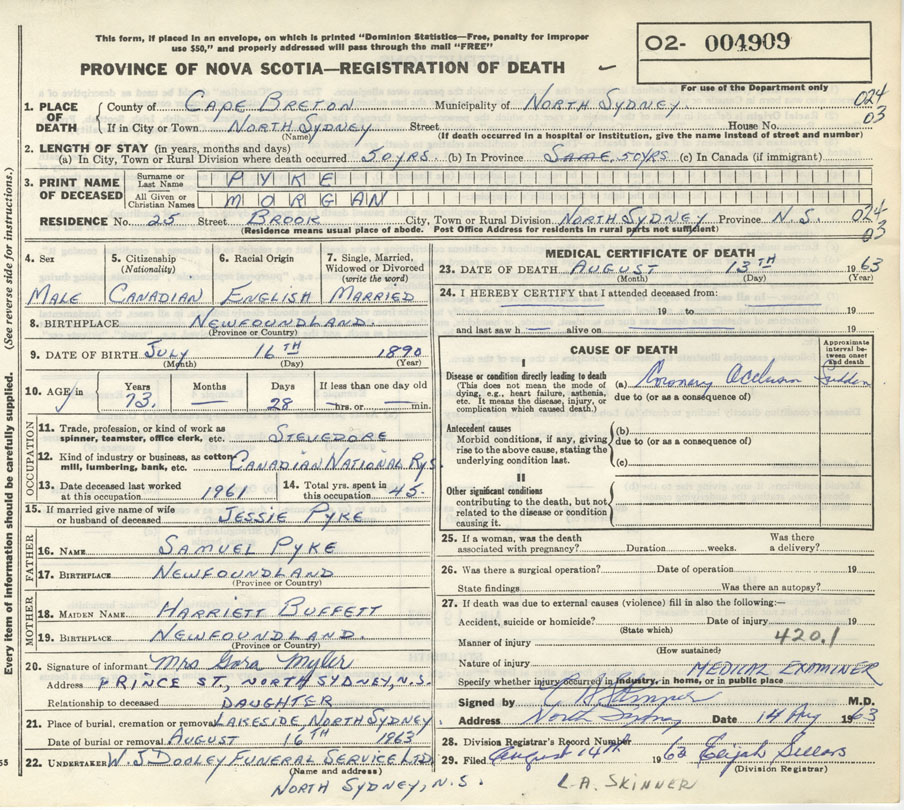 This form, if placed in an envelope, on which is printed "Dominion Statistics—Free, penalty for improper
use $50," and properly addressed will pass through the mail "FREE"
O2- 004909
PROVINCE OF NOVA SCOTIA—REGISTRATION OF DEATH
For use of the Department only
1. PLACE OF DEATH County of CAPE BRETON Municipality of NORTH SYDNEY. 024
If in City or Town NORTH SYDNEY Street House No. 03
(Name) (If death occurred in a hospital or institution, give the name instead of street and number)
2. LENGTH OF STAY (in years, months and days)
(a) In City, Town or Rural Division where death occurred 50 YRS. (b) In Province SAME, 50 YRS (c) In Canada (if immigrant)
3. PRINT NAME OF DECEASED
Surname or Last Name PYKE
All Given or Christian Names MORGAN
RESIDENCE No. 25 Street BROOK City, Town or Rural Division NORTH SYDNEY Province N.S. 024
(Residence means usual place of abode. Post Office Address for residents in rural parts not sufficient) 03
4. Sex MALE
5. Citizenship (Nationality) CANADIAN
6. Racial Origin ENGLISH
7. Single, Married, Widowed or Divorced (write the word) MARRIED
8. BIRTHPLACE NEWFOUNDLAND.
(Province or Country)
9. DATE OF BIRTH JULY 16TH 1890
(Month) (Day) (Year)
10. AGE in Years 73. Months — Days 28 If less than one day old — hrs. or — min.
OCCUPATION
11. Trade, profession, or kind of work as spinner, teamster, office clerk, etc. STEVEDORE
12. Kind of industry or business, as cotten mill, lumbering, bank, etc. CANADIAN NATIONAL RYS.
13. Date deceased last worked at this occupation 1961
14. Total yrs. spent in this occupation 45.
15. If married give name of wife or husband of deceased JESSIE PYKE
FATHER
16. NAME SAMUEL PYKE
17. BIRTHPLACE NEWFOUNDLAND
(Province or Country)
MOTHER
18. MAIDEN NAME HARRIETT BUFFETT
19. BIRTHPLACE NEWFOUNDLAND.
(Province or Country)
20. Signature of informant Mrs Myler
Address PRINCE ST., NORTH SYDNEY, N.S.
Relationship to deceased DAUGHTER
21. Place of burial, cremation or removal LAKESIDE, NORTH SYDNEY.
Date of burial or removal AUGUST 16TH 1963
22. UNDERTAKER W. J DOOLEY FUNERAL SERVICE LTD
(Name and address)
NORTH SYDNEY, N.S.
MEDICAL CERTIFICATE OF DEATH
23. DATE OF DEATH AUGUST 13TH 1963
(Month) (Day) (Year)
24. I HEREBY CERTIFY that I attended deceased from:
19 to 19
and last saw h — alive on — 19
CAUSE OF DEATH
Approximate interval between onset and death
I
Disease or condition directly leading to death (a) Coronary Occlusion Sudden
(This does not mean the mode of dying, e.g., heart failure, asthenia, etc. It means the disease, injury, or complication which caused death.)
due to (or as a consequence of)
Antecedent causes (b)
Morbid conditions, if any, giving rise to the above cause, stating the underlying condition last.
due to (or as a consequence of)
(c)
II
Other significant conditions
contributing to the death, but not related to the disease or condition causing it.
25. If a woman, was the death associated with pregnancy? Duration weeks. Was there a delivery?
26. Was there a surgical operation? Date of operation 19
State findings Was there an autopsy?
27. If death was due to external causes (violence) fill in also the following:—
Accident, suicide or homicide? Date of injury 19
(State which)
Manner of injury 420.1
(How sustained)
Nature of injury MEDICAL EXAMINER
Specify whether injury occurred in industry, in home, or in public place
Signed by M.D.
Address North Sydney Date 14 Aug 1963
28. Division Registrar's Record Number
29. Filed August 14th 1963 Elijah Sellars
(Division Registrar)
L.A. SKINNER
Every item of information should be carefully supplied. (See reverse side for instructions.)
55